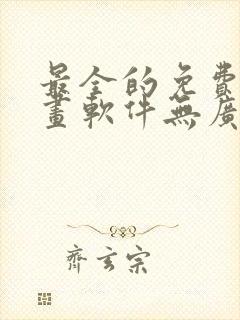 最全的免費
畫軟件無廣
齊玄宗